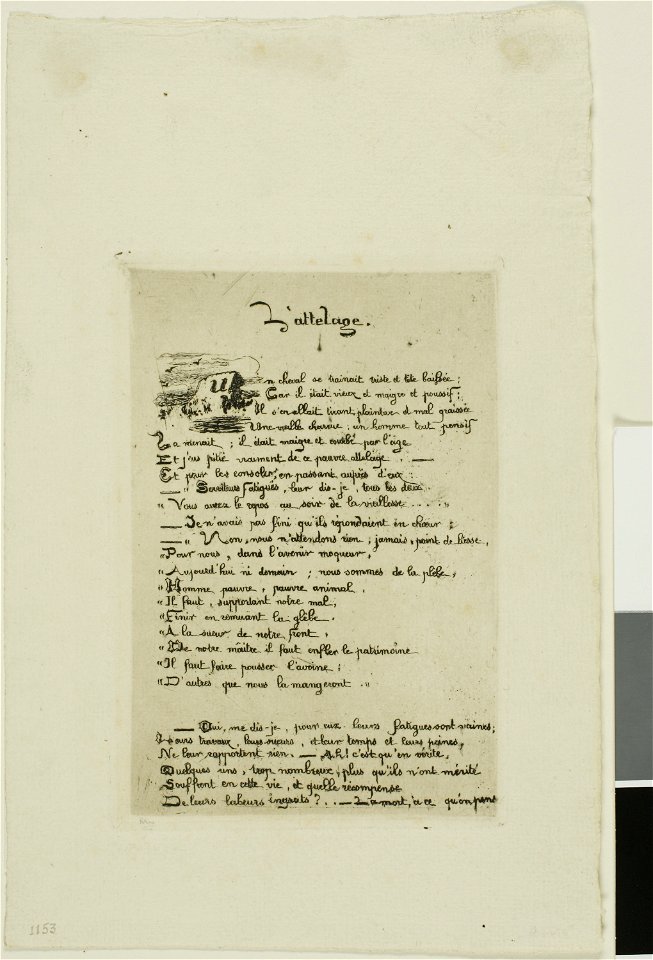 L'attelage.
Un cheval se trainait triste et tête baissée ;
Car il était vieux et maigre et poussif ;
Il s'en allait tirant, plaintive et mal graissée
Une vieille charrue ; un homme tout pensif
La menait ; il était maigre et courbé par l'âge
Et j'eus pitié vraiment de ce pauvre attelage . —
Et pour les consoler, en passant auprès d'eux :
— " Serviteurs fatigués, leur dis-je, tous les deux
" Vous aurez le repos au soir de la vieillesse ..... "
— Je n'avais pas fini qu'ils répondaient en chœur :
— " Non, nous n'attendons rien ; jamais, point de liesse,
" Pour nous, dans l'avenir moqueur,
" Aujourd'hui ni demain ; nous sommes de la plèbe,
" Homme pauvre, pauvre animal,
" Il faut, supportant notre mal,
" Finir en remuant la glèbe.
" A la sueur de notre front,
" De notre maître il faut enfler le patrimoine
" Il faut faire pousser l'avoine :
" D'autres que nous la mangeront . "
— Oui, me dis-je, pour eux leurs fatigues sont vaines ;
Leurs travaux, leurs sueurs, et leur temps et leurs peines,
Ne leur rapportent rien. — Ah! c'est qu'en vérité,
Quelques uns, trop nombreux, plus qu'ils n'ont mérité
Souffrent en cette vie, et quelle récompense
De leurs labeurs ingrats ? .. — La mort, à ce qu'on pense
1153